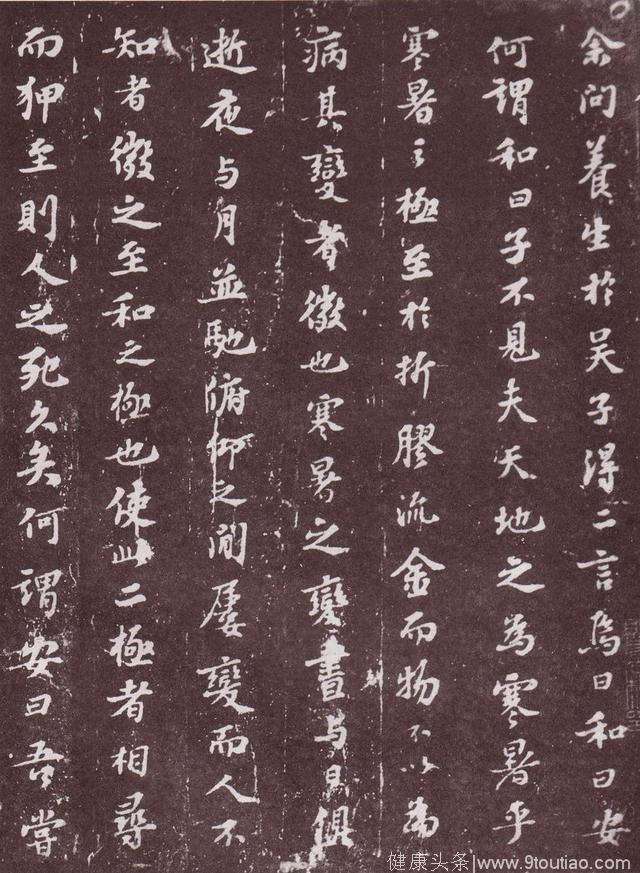 余问養生於吴子得二言焉曰和曰安
何謂和曰子不見夫天地之為寒暑乎
寒暑之極至於折膠流金而物不以為
病其變者微也寒暑之變晝与日俱
逝夜与月並馳俯仰之間屡變而人不
知者微之至和之極也使此二極者相尋
而狎至則人之死久矣何謂安曰吾嘗
健康头条|www.9toutiao.com